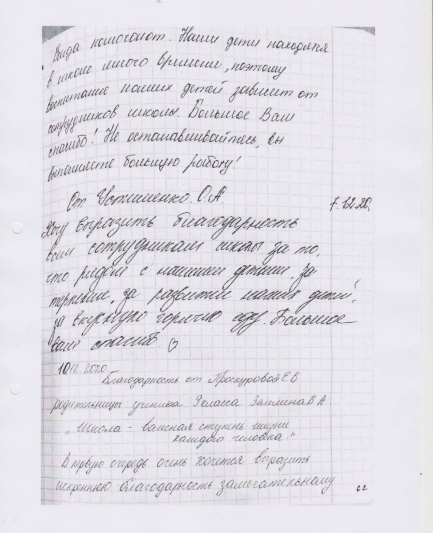 всегда помогают. Наши дети находятся
в школе много времени, поэтому
воспитание наших детей зависит от
сотрудников школы. Большое Вам
спасибо! Не останавливайтесь, вы
выполняете большую работу!
От Устименко. О.А
7.12.20.
Хочу выразить благодарность
всем сотрудникам школы за то,
что рядом с нашими детьми, за
терпение, за развитие наших детей,
за вкусную горячую еду. Большое
вам спасибо ♡
10.12.2020.
Благодарность от Проскуровой Е В
родительницы ученика 9 класса
"Школа - важная ступень жизни
каждого человека"
В первую очередь очень хочется выразить
искреннюю благодарность замечательному
62